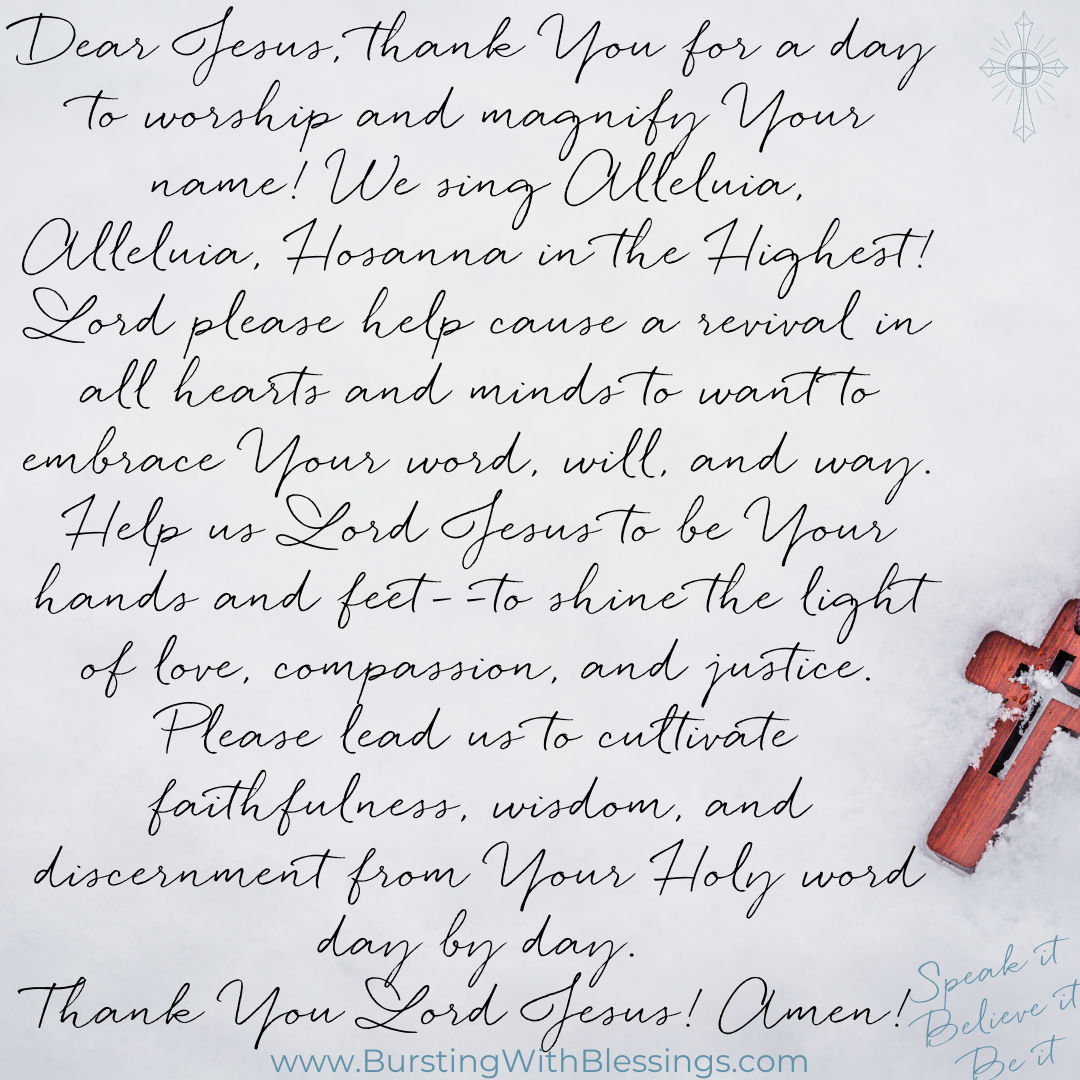 Dear Jesus, thank You for a day
to worship and magnify Your
name! We sing Alleluia,
Alleluia, Hosanna in the Highest!
Lord please help cause a revival in
all hearts and minds to want to
embrace Your word, will, and way.
Help us Lord Jesus to be Your
hands and feet--to shine the light
of love, compassion, and justice.
Please lead us to cultivate
faithfulness, wisdom, and
discernment from Your Holy word
day by day.
Thank You Lord Jesus! Amen!
Speak it
Believe it
Be it
www.BurstingWithBlessings.com